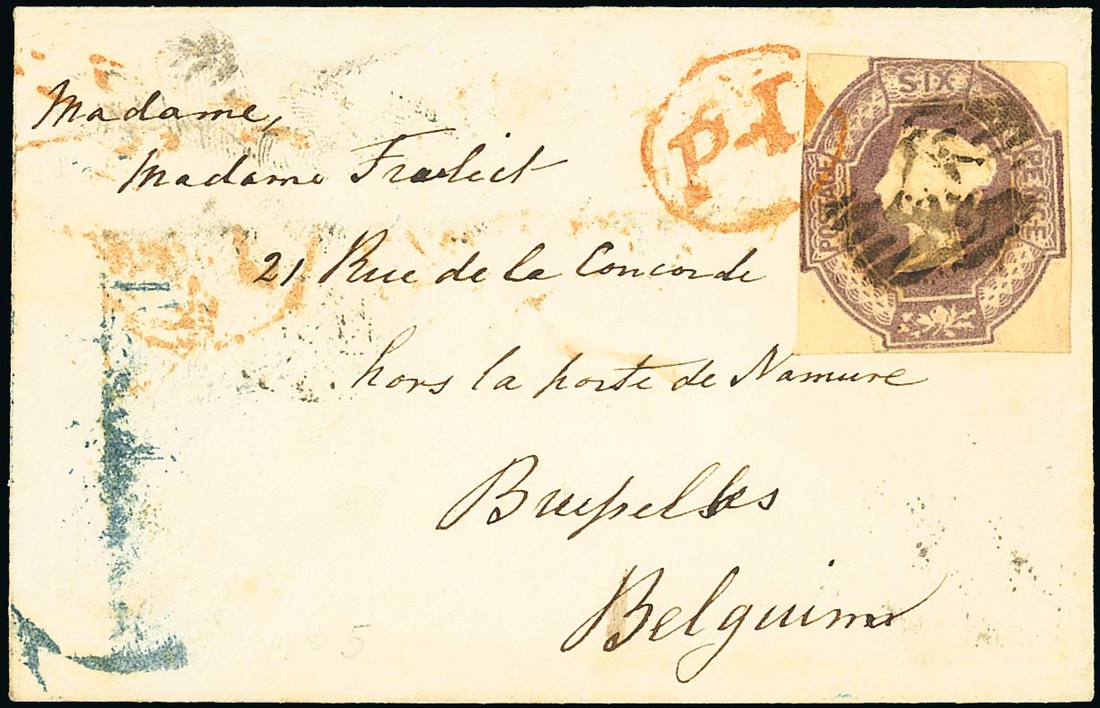 Madame,
Madame Frolict
21 Rue de la Concorde
hors la porte de Namure
Bruxelles
Belguim
P.d.I
SIX
PENCE
POSTAGE